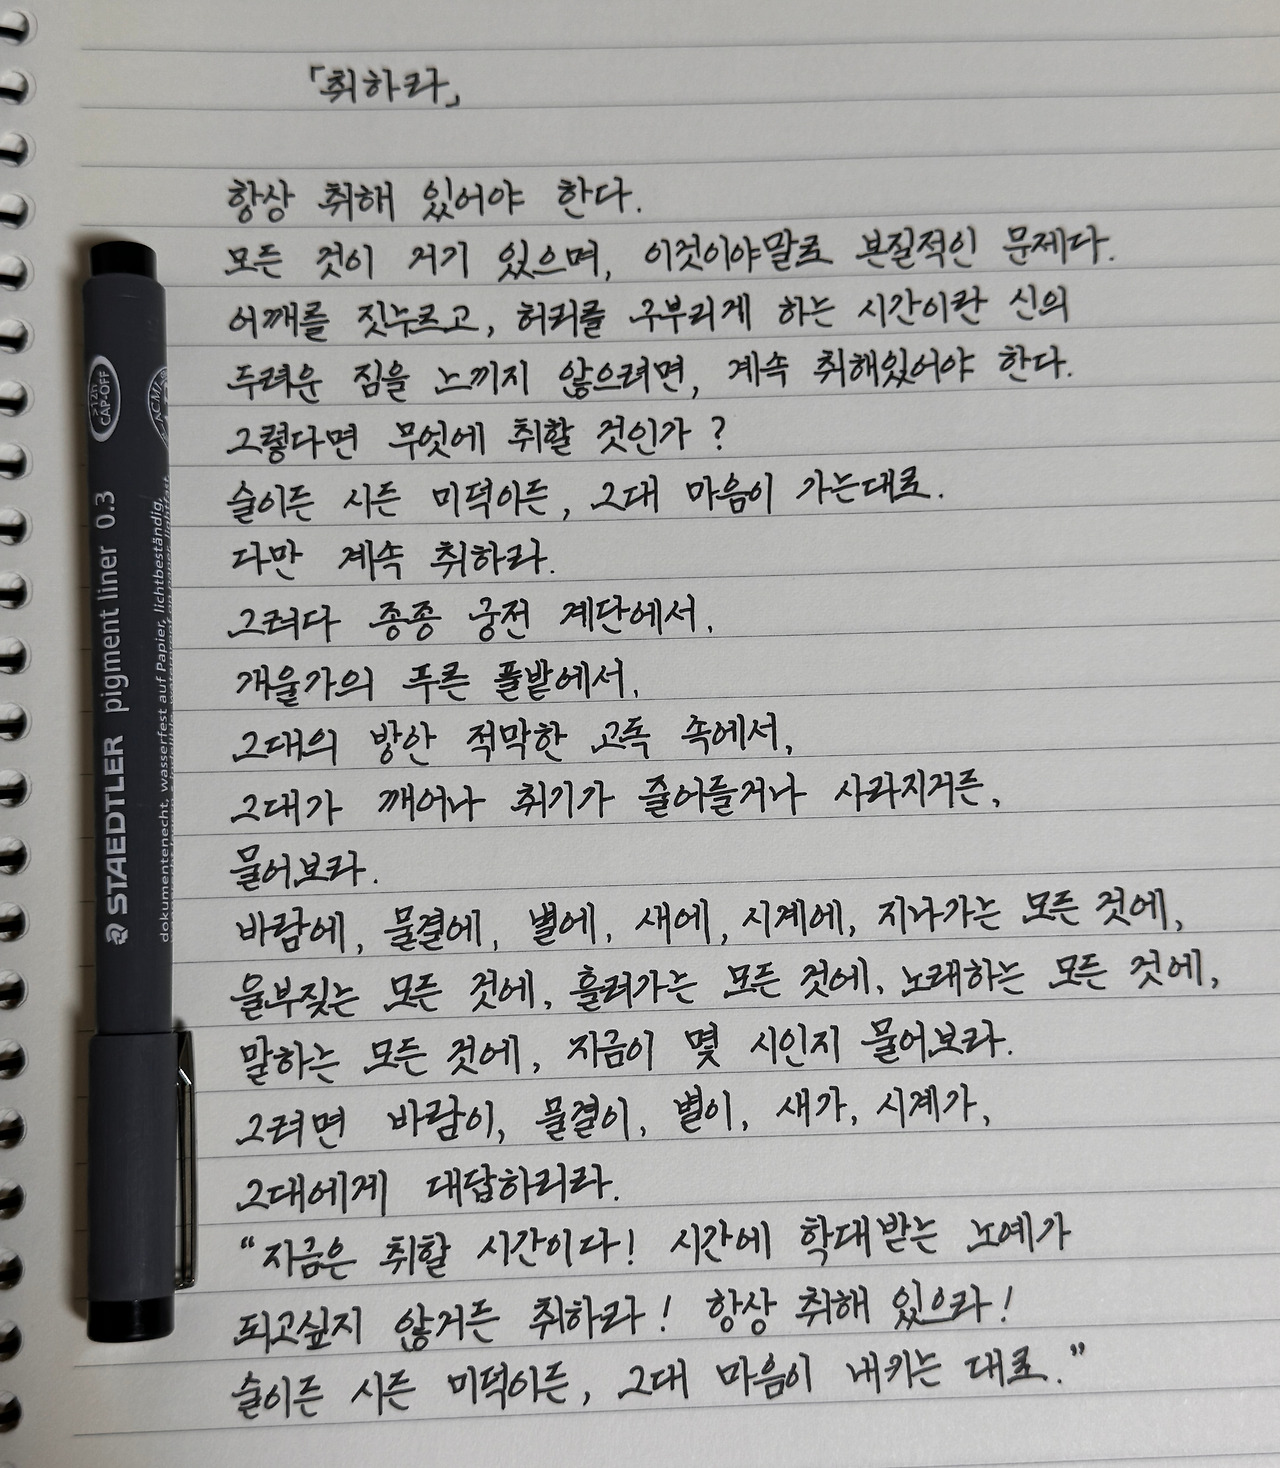 「취하라」
항상 취해 있어야 한다.
모든 것이 거기 있으며, 이것이야말로 본질적인 문제다.
어깨를 짓누르고, 허리를 구부리게 하는 시간이란 신의
두려운 짐을 느끼지 않으려면, 계속 취해있어야 한다.
그렇다면 무엇에 취할 것인가?
술이든 시든 미덕이든, 그대 마음이 가는대로.
다만 계속 취하라.
그러다 종종 궁전 계단에서,
개울가의 푸른 풀밭에서,
그대의 방안 적막한 고독 속에서,
그대가 깨어나 취기가 줄어들거나 사라지거든,
물어보라.
바람에, 물결에, 별에, 새에, 시계에, 지나가는 모든 것에,
울부짖는 모든 것에, 흘러가는 모든 것에, 노래하는 모든 것에,
말하는 모든 것에, 지금이 몇 시인지 물어보라.
그러면 바람이, 물결이, 별이, 새가, 시계가,
그대에게 대답하리라.
"지금은 취할 시간이다! 시간에 학대받는 노예가
되고싶지 않거든 취하라! 항상 취해 있으라!
술이든 시든 미덕이든, 그대 마음이 내키는 대로."
STAEDTLER pigment liner 0.3
CAP-OFF
dokumentenecht, wasserfest auf Papier, lichtbeständig,